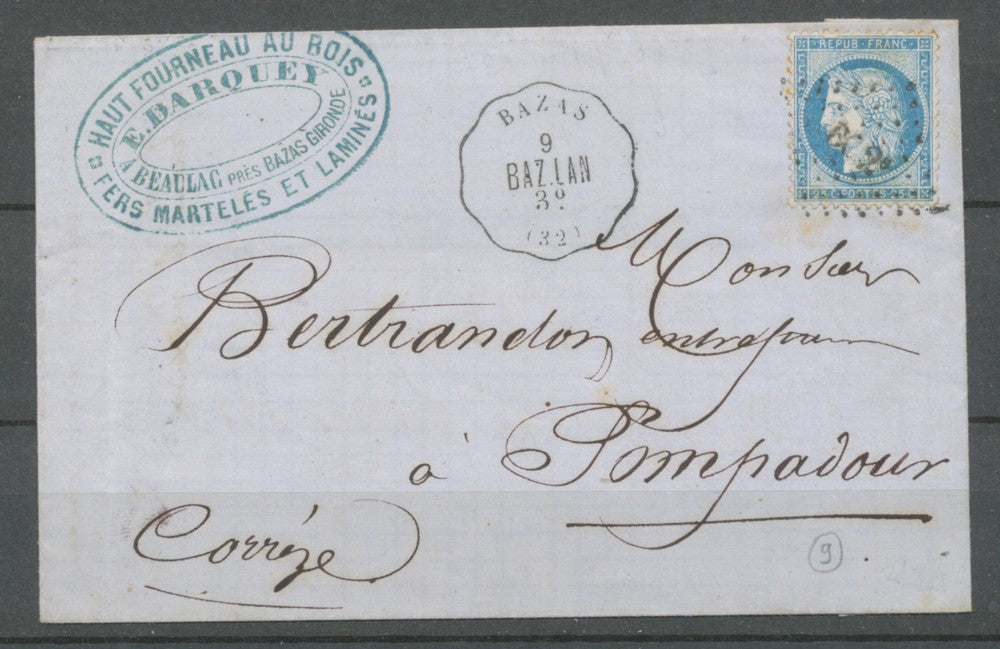 HAUT FOURNEAU AU BOIS
E. DARQUEY
A BEAULAC PRÈS BAZAS GIRONDE
FERS MARTELÉS ET LAMINÉS
BAZAS
9
BAZ.LAN
3º
(32)
REPUB. FRANC.
25 C. POSTES 25 C.
Monsieur
Bertrandon entrepreneur
à Pompadour
Corrèze
9